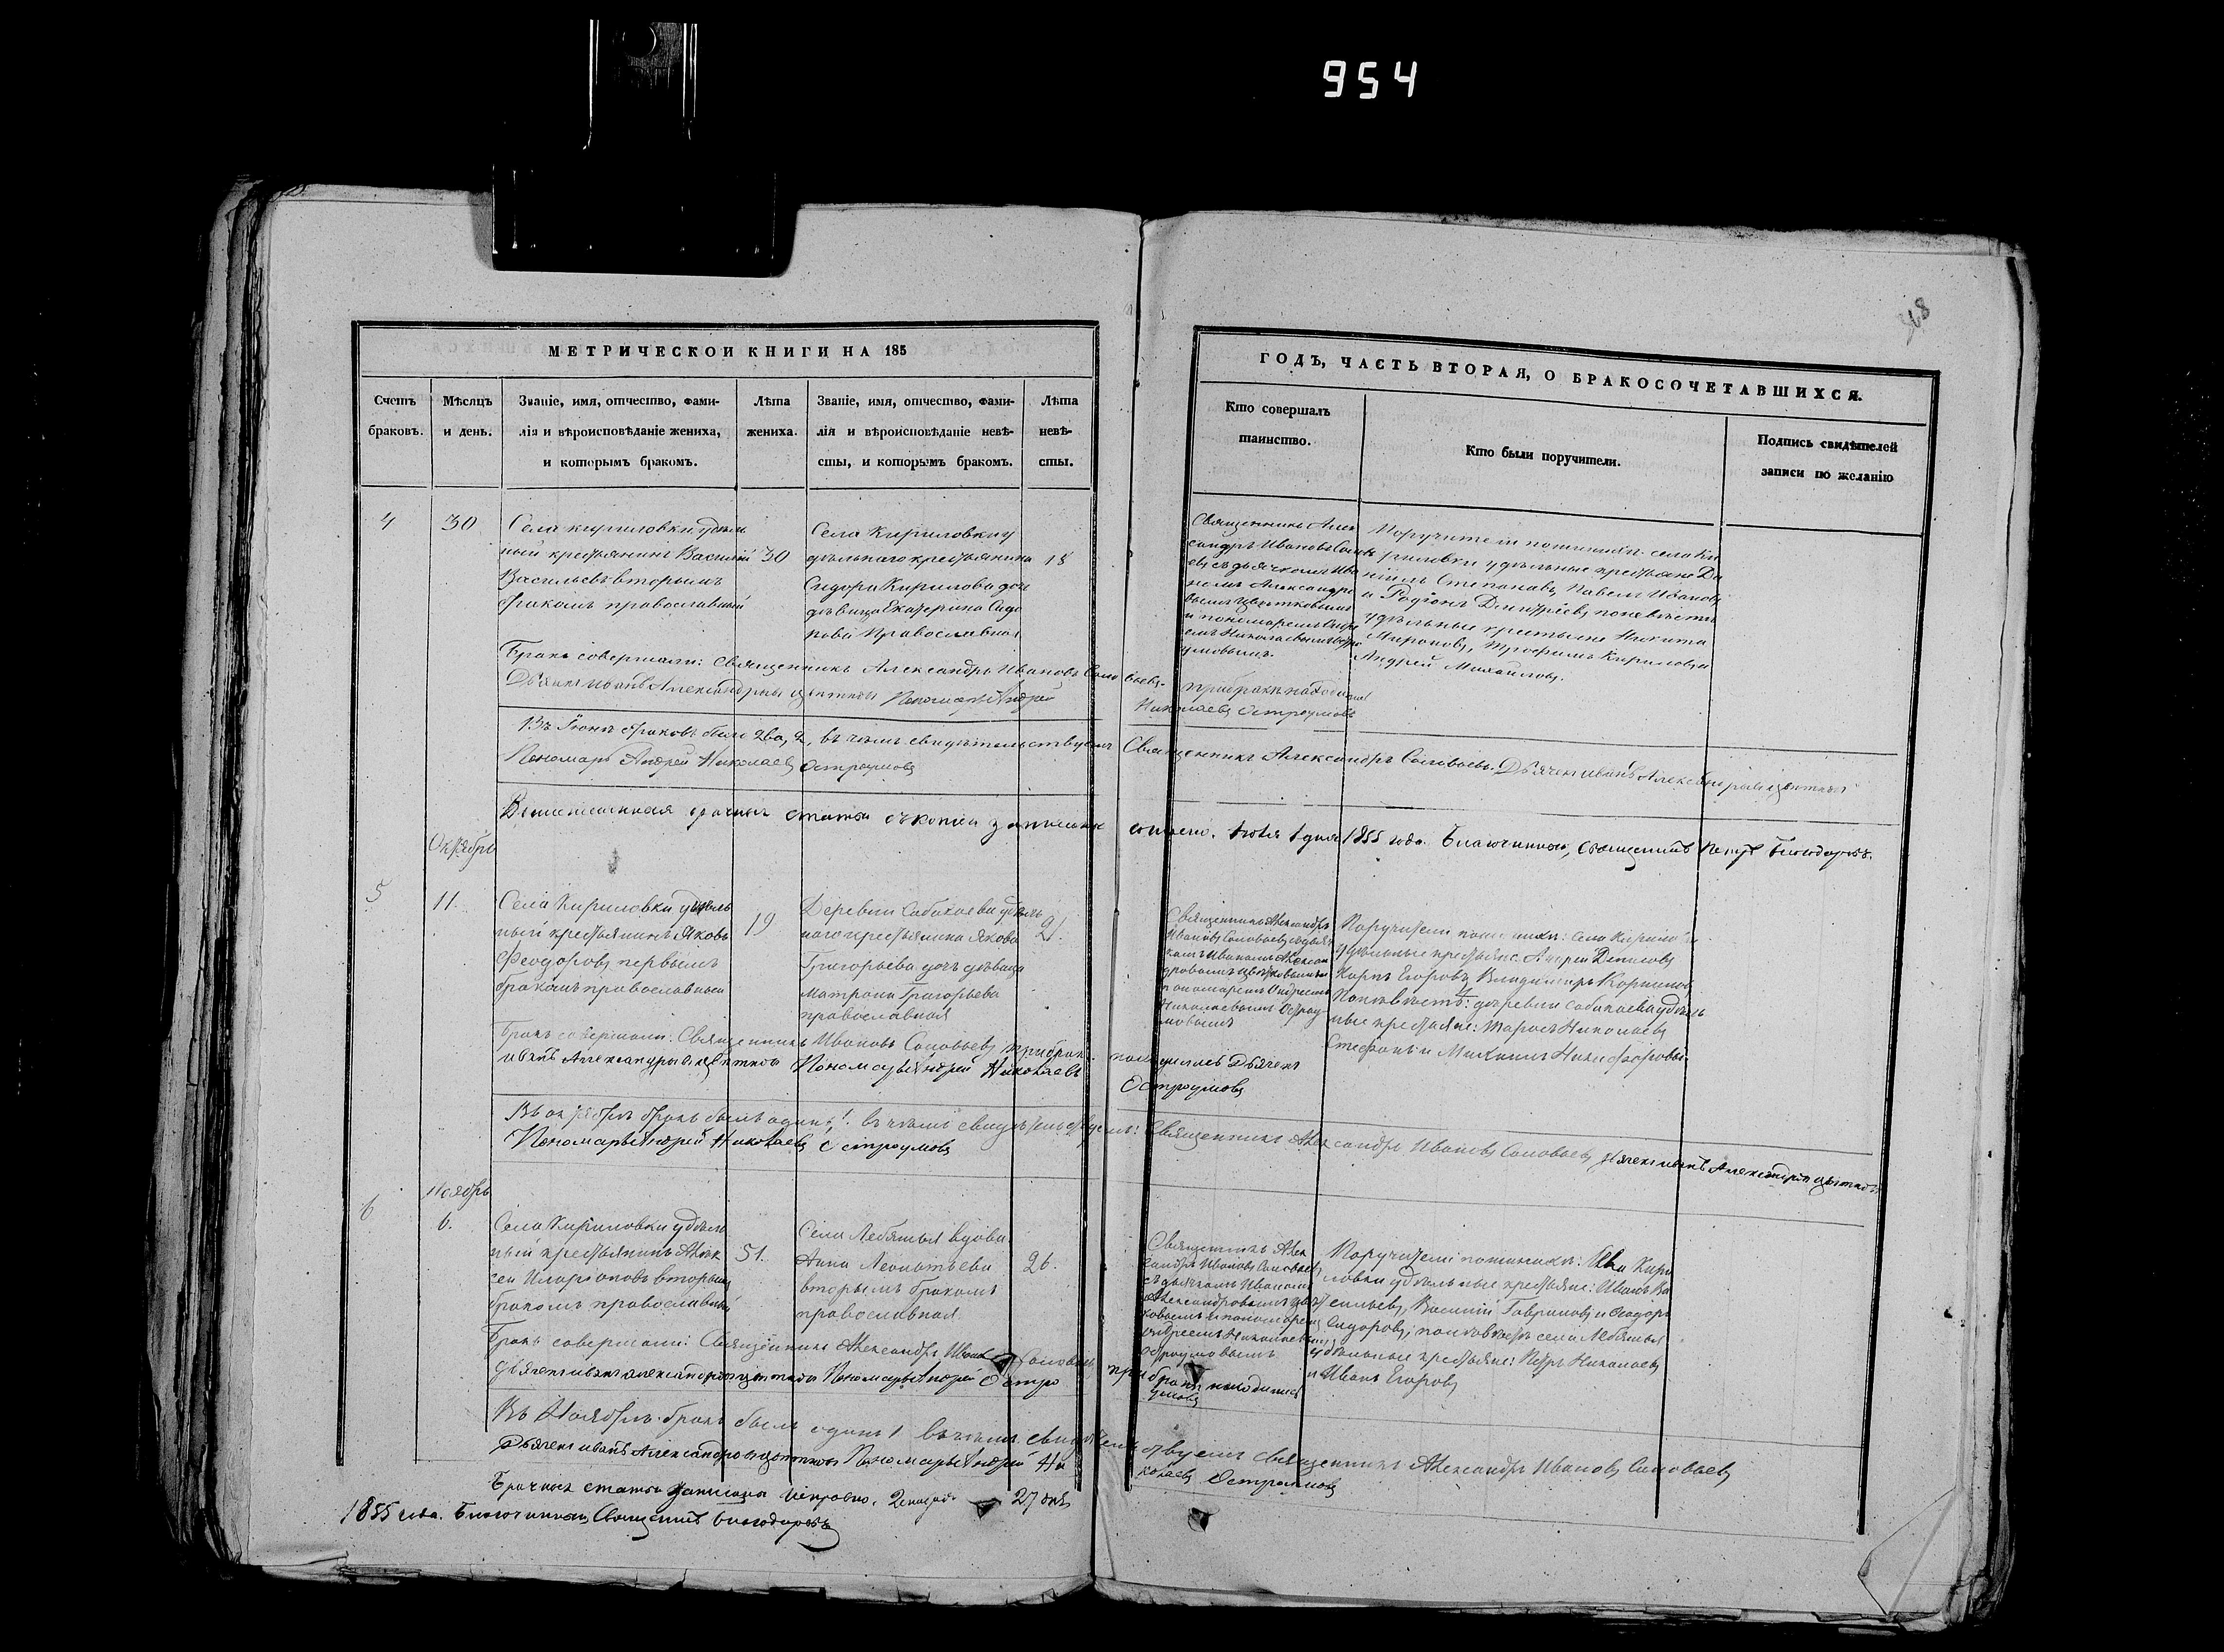 954
368
МЕТРИЧЕСКОЙ КНИГИ НА 185
ГОДЪ, ЧАСТЬ ВТОРАЯ, О БРАКОСОЧЕТАВШИХСЯ.
Счетъ
браковъ.
Мѣсяцъ
и день.
Званіе, имя, отчество, фами-
лія и вѣроисповѣданіе жениха,
и которымъ бракомъ.
Лѣта
жениха.
Званіе, имя, отчество, фами-
лія и вѣроисповѣданіе невѣ-
сты, и которымъ бракомъ.
Лѣта
невѣ-
сты.
Кто совершалъ
таинство.
Кто были поручители.
Подпись свидѣтелей
записи по желанію
4
30
Села кириловки удѣль
ный крестьянинъ Василій
Васильевъ вторымъ
бракомъ православный
30
Села Кириловки у
дѣльнаго крестьянина
Сидора Кирилова доч
дѣвица Екатерина Сидо
рова Православная
18
Священникъ Алек
сандръ Ивановъ Соловь
евъ съ дьячкомъ Ива
номъ Александро
вымъ Цвѣтковымъ
и пономаремъ Андре
емъ Николаевымъ Остро
умовымъ.
Поручители по женихѣ: села Ки
риловки удѣльные крестьяне Да
ніилъ Степановъ, Павелъ Ивановъ
и Родіонъ Дмитріевъ, по невѣстѣ
удѣльные крестьяне Никита
Мироновъ, Трофимъ Кириловъ и
Андрей Михайловъ.
Бракъ совершали: Священникъ Александръ Ивановъ Соловьевъ. при бракѣ находились
Дьячекъ Иванъ Александровъ Цвѣтковъ Пономарь Андрей Николаевъ Остроумовъ
Въ Іюнѣ браковъ было два, 2, въ чемъ свидѣтельствуемъ Священникъ Александръ Соловьевъ. Дьячекъ Иванъ Александровъ Цвѣтковъ
Пономарь Андрей Николаевъ Остроумовъ
Вышеписанная брачныя статьи съ копіи записаны Іюля 1 дня 1855 года. Благочинный, Священникъ Петръ
Октябрь
5
11.
Села Кириловки удѣль
ный крестьянинъ Яковъ
Феодоровъ первымъ
бракомъ православный
19
Деревни Собакаевы удѣль
наго крестьянина Якова
Григорьева доч дѣвица
Матрона Григорьева
православная
21.
Священникъ Александръ
Ивановъ Соловьевъ съ дьяч
комъ Иваномъ Алексан
дровымъ Цвѣтковымъ и
пономаремъ Андреемъ
Николаевымъ Остроу
мовымъ
Поручители по женихѣ: села Кирило
удѣльные крестьяне: Андрей Денисовъ
Карпъ Егоровъ Владимиръ Корниловъ
По невѣстѣ: деревни Собакаевы удѣль
ные крестьяне: Тарасъ Николаевъ
Стефанъ и Михаилъ Никифоровы.
Бракъ совершали: Священникъ Ивановъ Соловьевъ при бракѣ находились Дьячекъ
Иванъ Александровъ Цвѣтковъ Пономарь Андрей Николаевъ Остроумовъ
Въ октябрѣ бракъ былъ одинъ 1. въ чемъ свидѣтельствуемъ: Священникъ Александръ Ивановъ Соловьевъ Дьячекъ Иванъ Александровъ Цвѣтковъ
Пономарь Андрей Николаевъ Остроумовъ
Ноябрь
6
6.
Села Кириловки удѣль
ный крестьянинъ Алек
сей Иларіоновъ вторымъ
бракомъ православный
51.
Села Лебяжья вдова
Анна Леонтьева
вторымъ бракомъ
православная
26.
Священникъ Алек
сандръ Ивановъ Соловьевъ
съ дьячкомъ Иваномъ
Александровымъ Цвѣт
ковымъ и пономаремъ
Андреемъ Николаевымъ
Остроумовымъ
Поручители по женихѣ: Села Кири
ловки удѣльные крестьяне: Иванъ Ва
сильевъ, Василій Гавриловъ и Феодоръ
Сидоровъ; по невѣстѣ села Лебяжья
удѣльные крестьяне: Петръ Николаевъ
и Иванъ Егоровъ
Бракъ совершали: Священникъ Александръ Ивановъ Соловьевъ при бракѣ находились
дьячекъ Иванъ Александровъ Цвѣтковъ Пономарь Андрей Остроумовъ
Въ Ноябрѣ бракъ былъ одинъ 1 въ чемъ свидѣтельствуемъ Священникъ Александръ Ивановъ Соловьевъ
Дьячекъ Иванъ Александровъ Цвѣтковъ Пономарь Андрей Николаевъ Остроумовъ
Брачныя статьи записаны исправно. Декабря 27 дня
1855 года. Благочинный, Священникъ